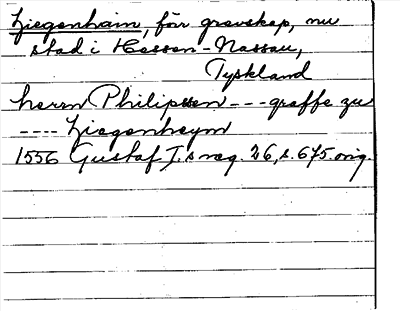 Ziegenhain, för grevskap, nu
stad i Hessen-Nassau,
Tyskland
herrn Philipssen --- graffe zu
---- Ziegenheym
1556 Gustaf I:s reg. 26, s. 675. orig.